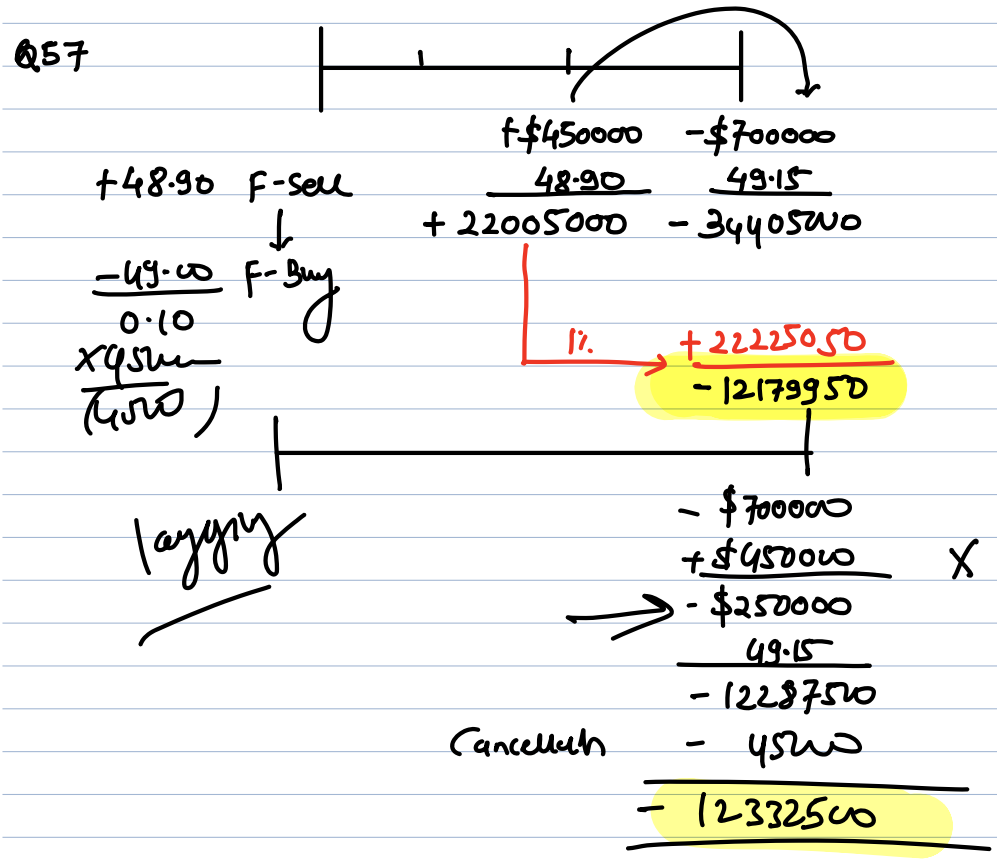 Q57
+$450000 -$700000
+48.90 F-Sell 48.90 49.15
+22005000 -34405000
-49.00 F-Buy
0.10
1% +22225050
-12179950
(45000)
lagging
-$700000
+$450000 X
-$250000
49.15
-12287500
-45000
-12332500